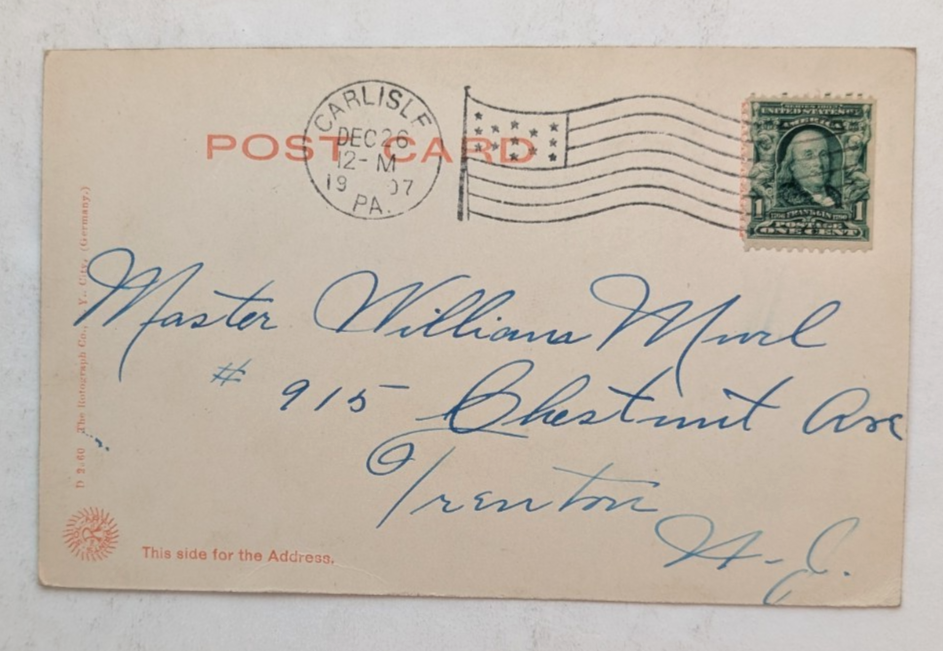 POST CARD
CARLISLE
DEC 26
12-M
1907
PA.
UNITED STATES
AMERICA
1 FRANKLIN 1
POSTAGE
ONE CENT
Master William
# 915 Chestnut Ave
Trenton
N.J.
The Rotograph Co., N. Y. City. (Germany.)
This side for the Address.